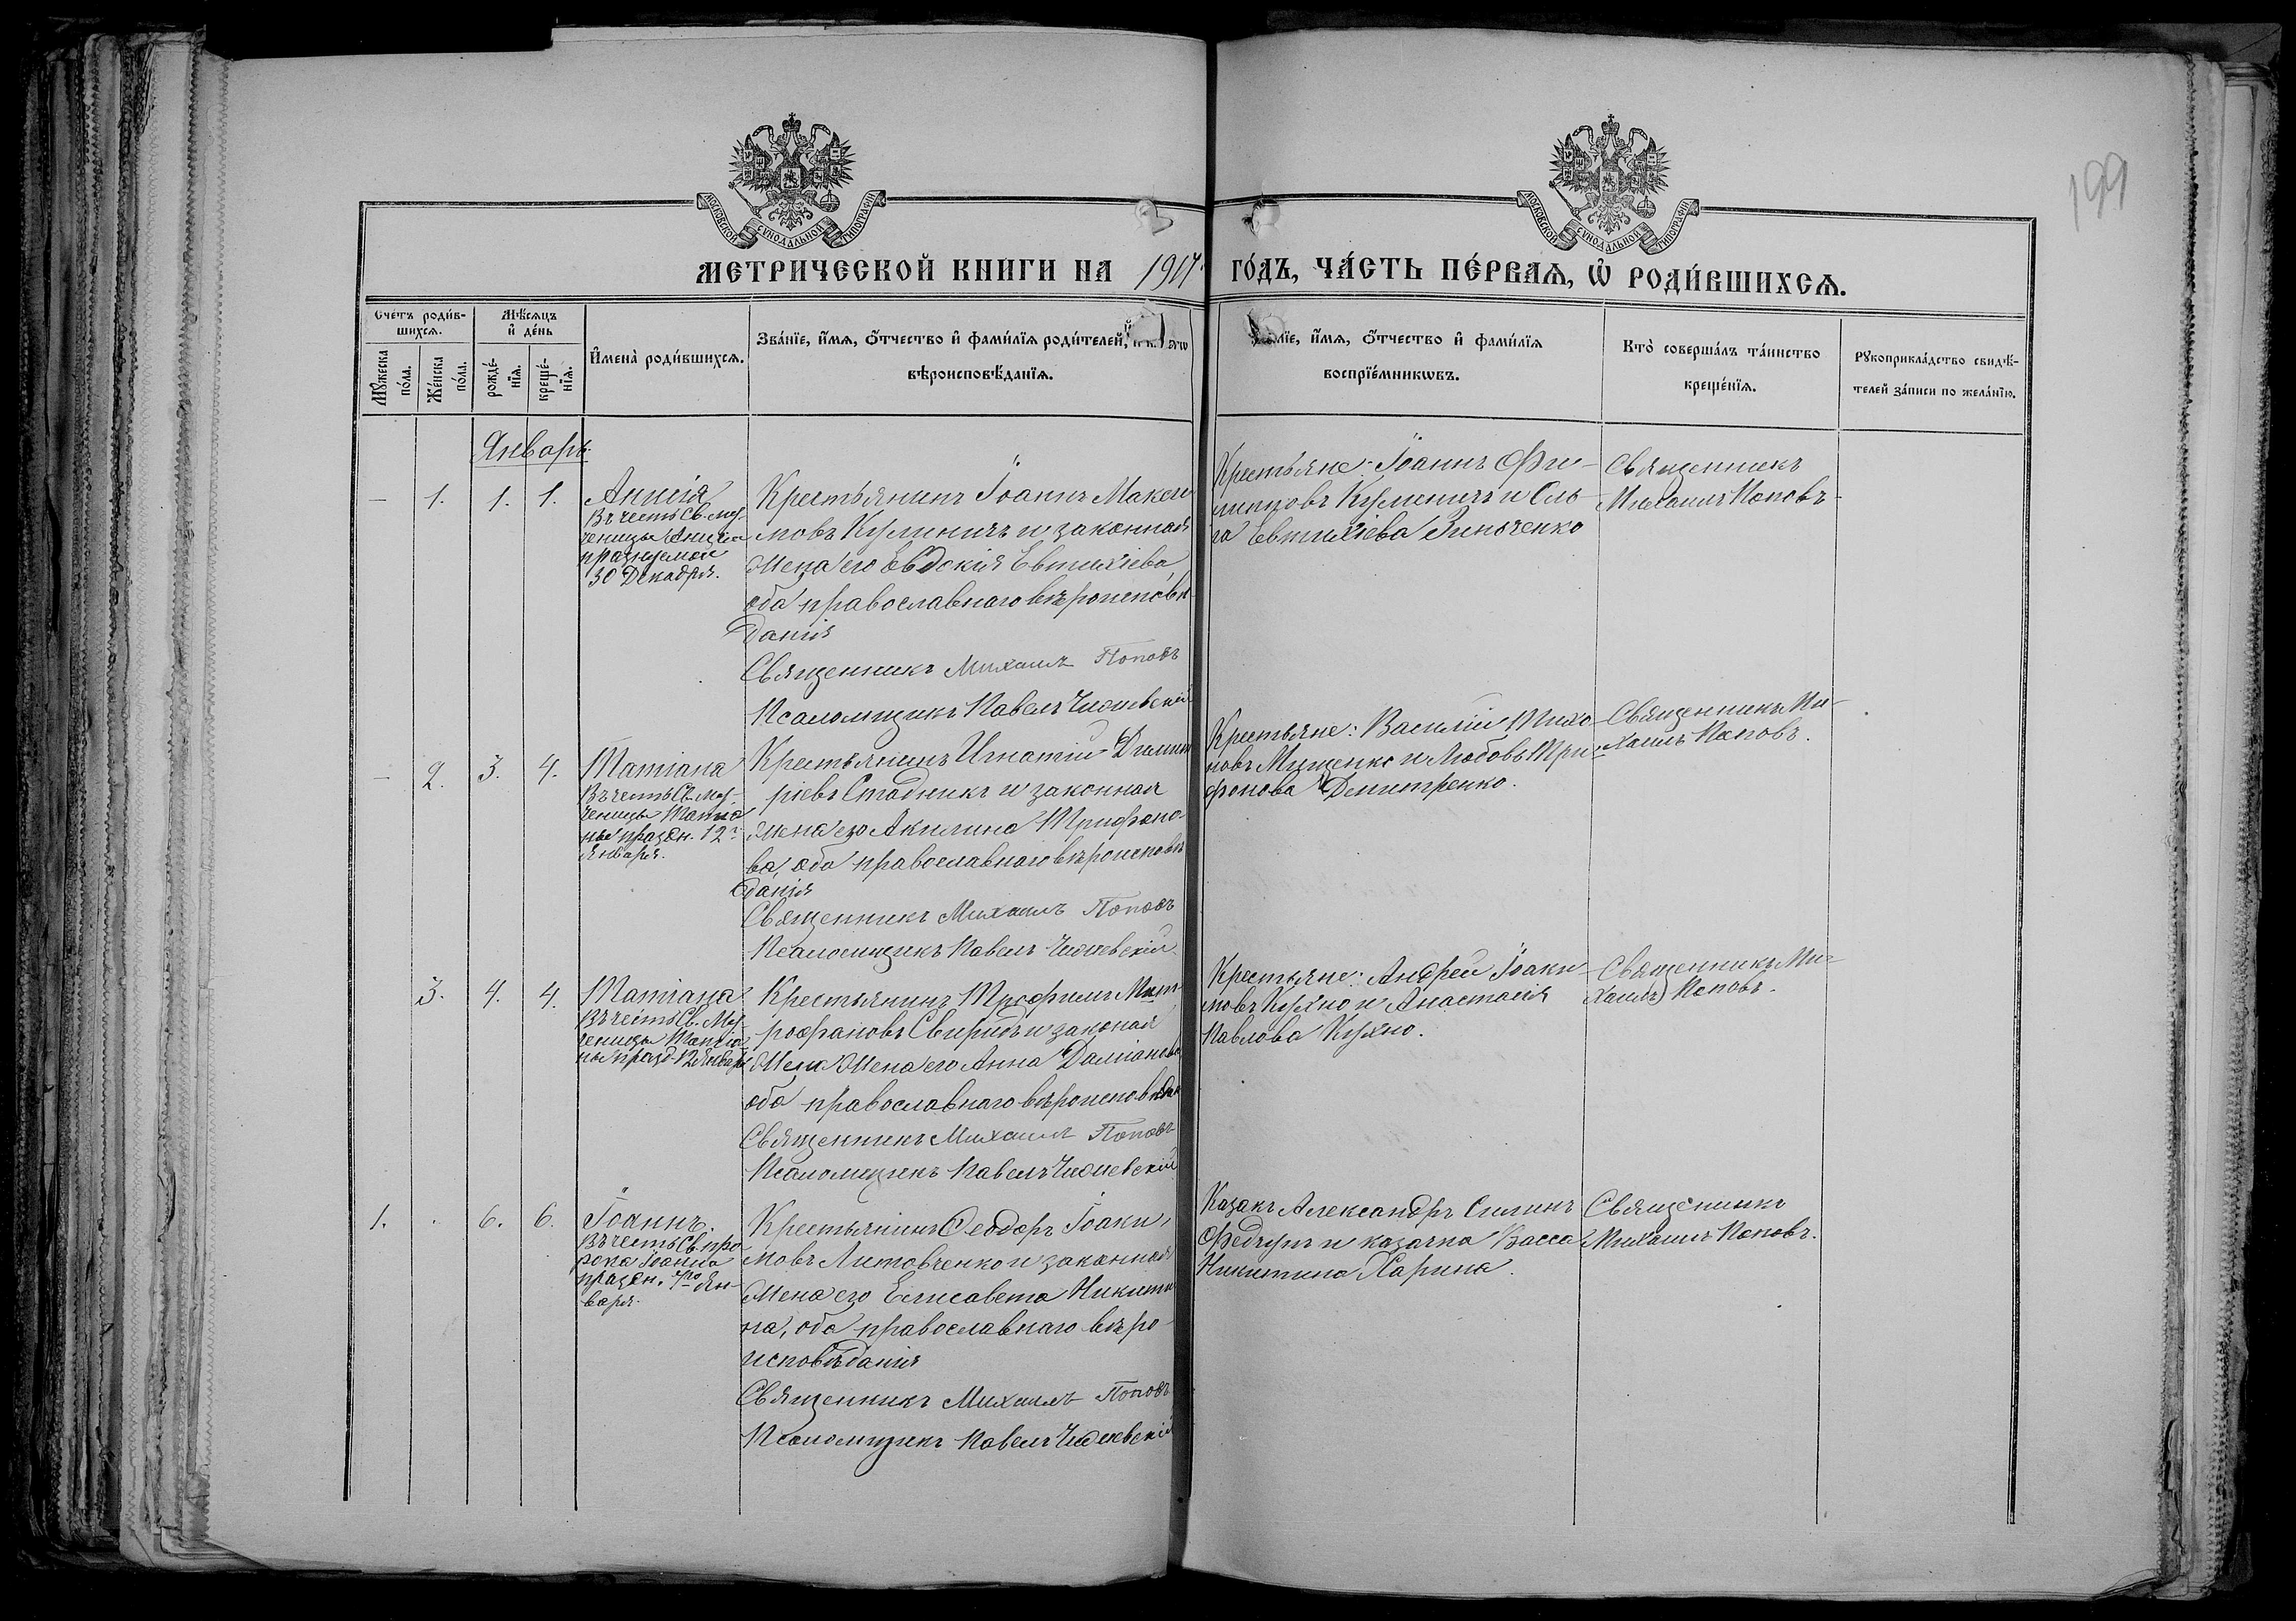 199
МОСКОВСКОЙ СѴНОДАЛЬНОЙ ТИПОГРАФІИ
МОСКОВСКОЙ СѴНОДАЛЬНОЙ ТИПОГРАФІИ
МЕТРИЧЕСКОЙ КНИГИ НА 1917 ГО́ДЪ, ЧА́СТЬ ПЕ́РВАѦ, Ѿ РОДИ́ВШИХСѦ.
Счетъ роди́в-
шихсѧ.
Мѣ́сѧцъ
и҆ де́нь
Мꙋ́жеска
по́ла.
Же́нска
по́ла.
рожде́-
нїѧ.
креще́-
нїѧ.
И҆мена̀ роди́вшихсѧ.
Зва́нїе, и҆́мѧ, ѻ҆́тчество и҆ фами́лїѧ роди́телей,
вѣроисповѣ́данїѧ.
и҆́мѧ, ѻ҆́тчество и҆ фами́лїѧ
воспрїе́мникѡвъ.
Кто̀ соверша́лъ та́инство
креще́нїѧ.
Рꙋкоприкла́дство свидѣ́-
телей за́писи по жела́нїю.
Январь.
— 1. 1. 1.
Анисія
Въ честь Св. му-
ченицы Анисіи
празнуемой
30 Декабря.
Крестьянинъ Іоаннъ Макси
мовъ Кулиничъ и законная
жена его Евдокія Евтихіева,
оба православнаго вѣроисповѣ-
данія
Священникъ Михаилъ Поповъ
Псаломщикъ Павелъ
Крестьяне: Іоаннъ Фи-
липповъ Кулиничъ и Оль-
га Евтихіева Зинченко
Священникъ
Михаилъ Поповъ
— 2. 3. 4.
Татіана
Въ честь Св. Му-
ченицы Татіа
ны празн. 12го
Января.
Крестьянинъ Игнатій Димит
ріевъ Стадникъ и законная
жена его Акилина Трифоно-
ва, оба православнаго вѣроисповѣ
данія
Священникъ Михаилъ Поповъ
Псаломщикъ Павелъ
Крестьяне: Василій Тихо-
новъ Мищенко и Любовь Три-
фонова Демитренко.
Священникъ Ми-
хаилъ Поповъ.
3. 4. 4.
Татіана
Въ честь Св. Му-
ченицы Татіа
ны празд. 12 Января
Крестьянинъ Трофимъ Мит-
рофановъ Свиридъ и законая
жена его Анна Даміанова
оба православнаго вѣроисповѣдан
Священникъ Михаилъ Поповъ
Псаломщикъ Павелъ
Крестьяне: Андрей Іоаки
мовъ Кухно и Анастасія
Павлова Кухно.
Священникъ Ми-
хаилъ Поповъ.
1. 6. 6.
Іоаннъ.
Въ честь Св. про
рока Іоанна
празн. 7го Ян-
варя.
Крестьянинъ Ѳеодоръ Іоаки-
мовъ Литовченко и законная
жена его Елисавета Никити
на, оба православнаго вѣро
исповѣданія
Священникъ Михаилъ Поповъ
Псаломщикъ Павелъ
Казакъ Александръ Силинъ
и казачка Васса
Никитина Ларина.
Священникъ
Михаилъ Поповъ.